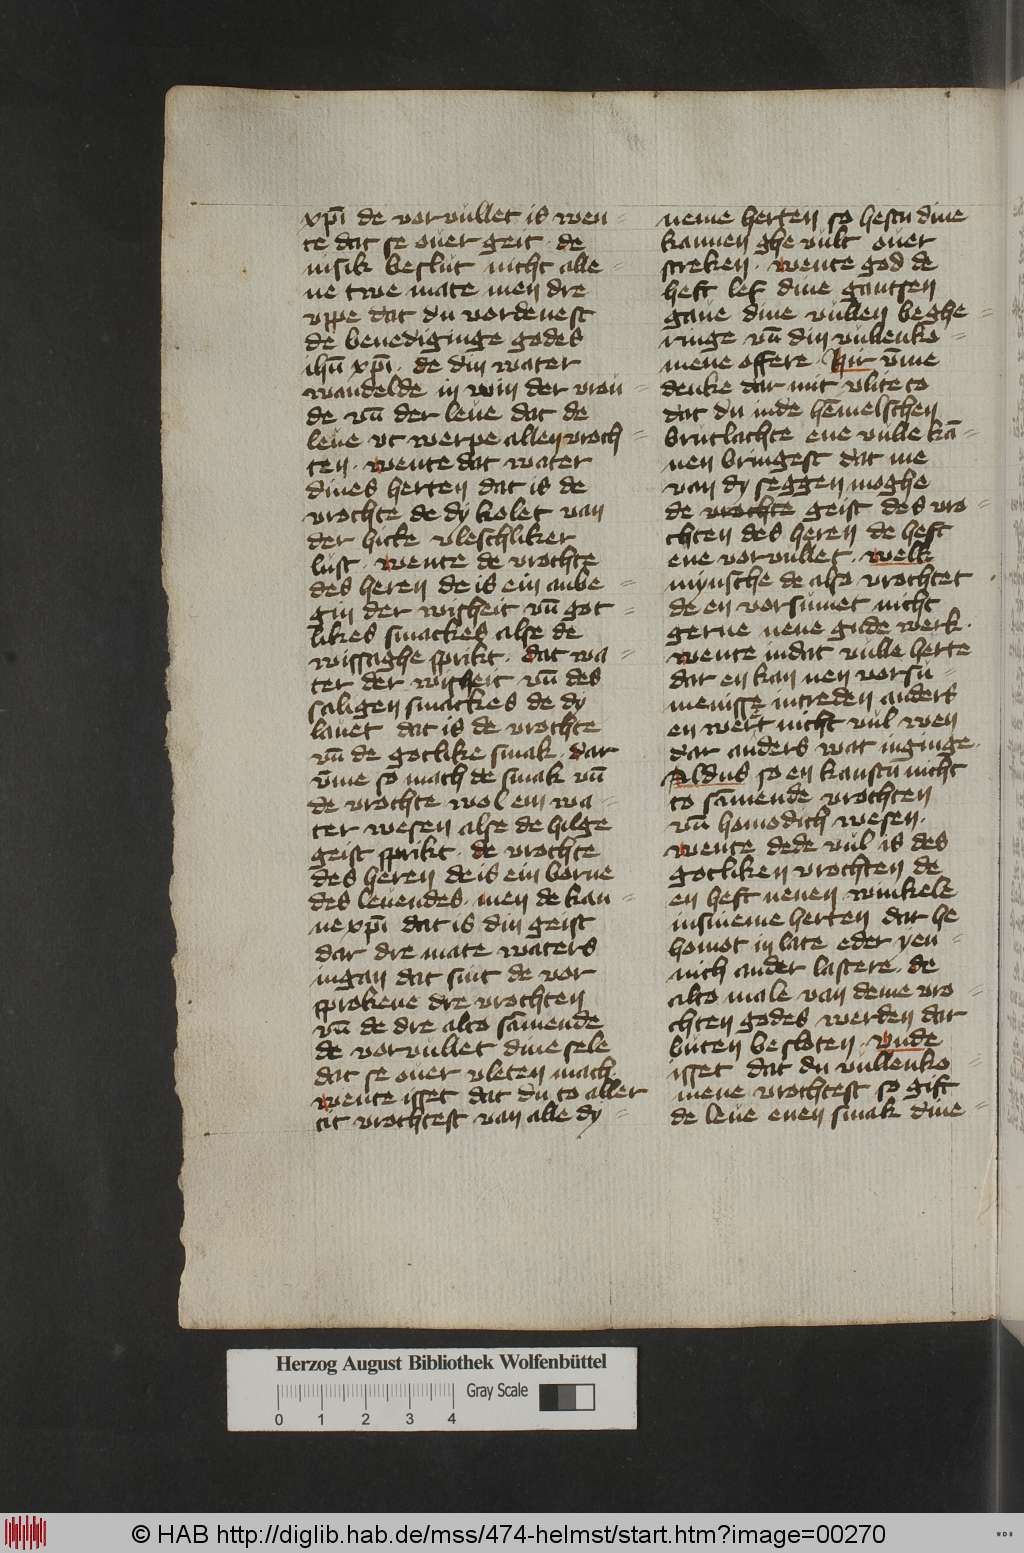 xp̄i de vorvullet is wen-
te dat se ouer geit · de
in sik beslut nicht alle-
ne twe mate men dre
vppe dat du vordenest
de benedig̈inge godes
ih̄u xp̄i · de din water
wandelde in win der vrou-
de vn̄ der leue dat de
leue vt werpe allen vroch-
ten · wente dat water
dines herten dat is de
vrochte de dy kolet van
der hicke vleschliker
lust · wente de vrochte
des heren de is ein anbe-
gin der wisheit vn̄ got-
likes smackes alse de
wissaghe sprikt · dat wa-
ter der wisheit vn̄ des
saligen smackes de dy
lauet dat is de vrochte
vn̄ de gotlike smak · dar
v̄me so mach de smak vn̄
de vrochte wol ein wa-
ter wesen alse de hilge
geist sprikt · de vrochte
des heren de is ein borne
des leuendes · men de kan-
ne xp̄i dat is din geist
dar dre mate waters
ingan dat sint de vor
sprokene dre vrochten
vn̄ de dre alto sāmende
de vorvullet dine sele
dat se ouer vleten mach ·
wente isset dat du to aller
tit vrochtest van alle dy-
neme herten so hestu dine
kannen ghe vult ouer
streken · wente god de
heft lef dine gantsen
gaue dine vullen beghe-
ringe vn̄ din vullenko-
mene offere · Hir v̄me
denke dar mit vlite to
dat du in de hēmelschen
brutlachte ene vulle kā-
nen bringest dat me
van dy seggen moghe
de vrochte geist des vro-
chten des heren de heft
ene vorvullet · welk
mynsche de also vrochtet
de en vorsumet nicht
gerne nene gude werk ·
wente in dat vulle herte
dar en kan nen vorsu-
menisse intreden anders
en wert nicht vul wen
dar anders wat inginge ·
Aldus so en kanstu nicht
to sāmende vrochten
vn̄ homodich wesen ·
wente dede vul is des
gotliken vrochten de
en heft nenen winkele
in sineme herten dar he
homot in late eder yen-
nich ander lastere · de
alto male van deme vro-
chten godes werden dar
buten besloten · vnde
isset dat du vullenko-
mene vrochtest so gift
de leue enen smak dine-
Herzog August Bibliothek Wolfenbüttel
Gray Scale
0 1 2 3 4
© HAB http://diglib.hab.de/mss/474-helmst/start.htm?image=00270